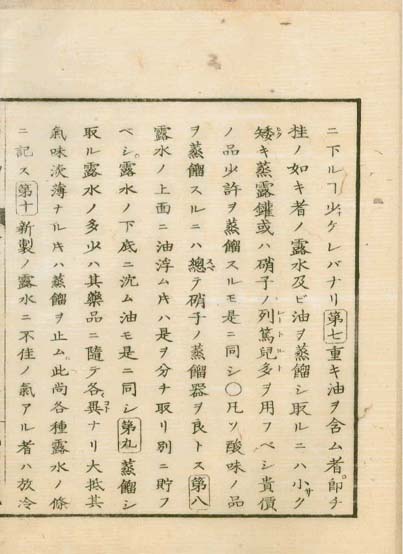 ニ下ルヿ少ケレバナリ第七重キ油ヲ含ム者即チ
桂ノ如キ者ノ露水及ビ油ヲ蒸餾シ取ルニハ小ク
矮キ蒸露鑵或ハ硝子ノ列篤兒多ヲ用フベシ貴價
ノ品少許ヲ蒸餾スルモ是ニ同シ〇凡ソ酸味ノ品
ヲ蒸餾スルニハ總テ硝子ノ蒸餾器ヲ良トス第八
露水ノ上面ニ油浮ムヰハ是ヲ分チ取リ別ニ貯フ
ベシ露水ノ下底ニ沈ム油モ是ニ同シ第九蒸餾シ
取ル露水ノ多少ハ其藥品ニ隨テ各異ナリ大抵其
氣味淡薄ナルヰハ蒸餾ヲ止ム此尚各種露水ノ條
ニ記ス第十新製ノ露水ニ不佳ノ氣アル者ハ放冷